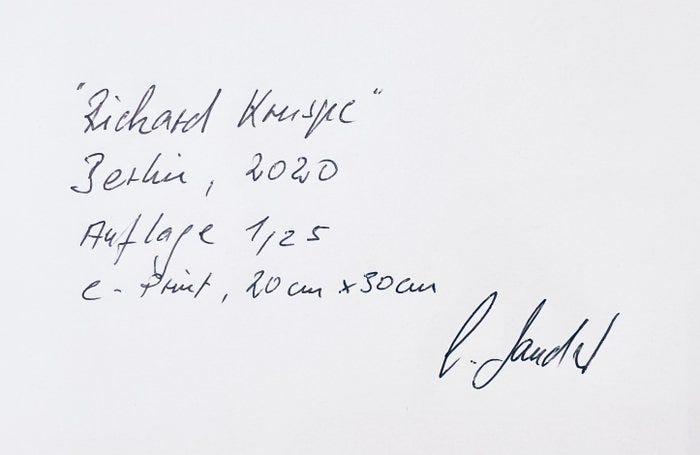 "Richard Kruspe"
Berlin, 2020
Auflage 1/25
c-Print, 20cm x 30cm